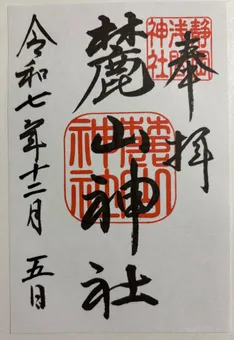 奉拝
静岡浅間神社
麓山神社
麓山神社
令和七年十二月五日